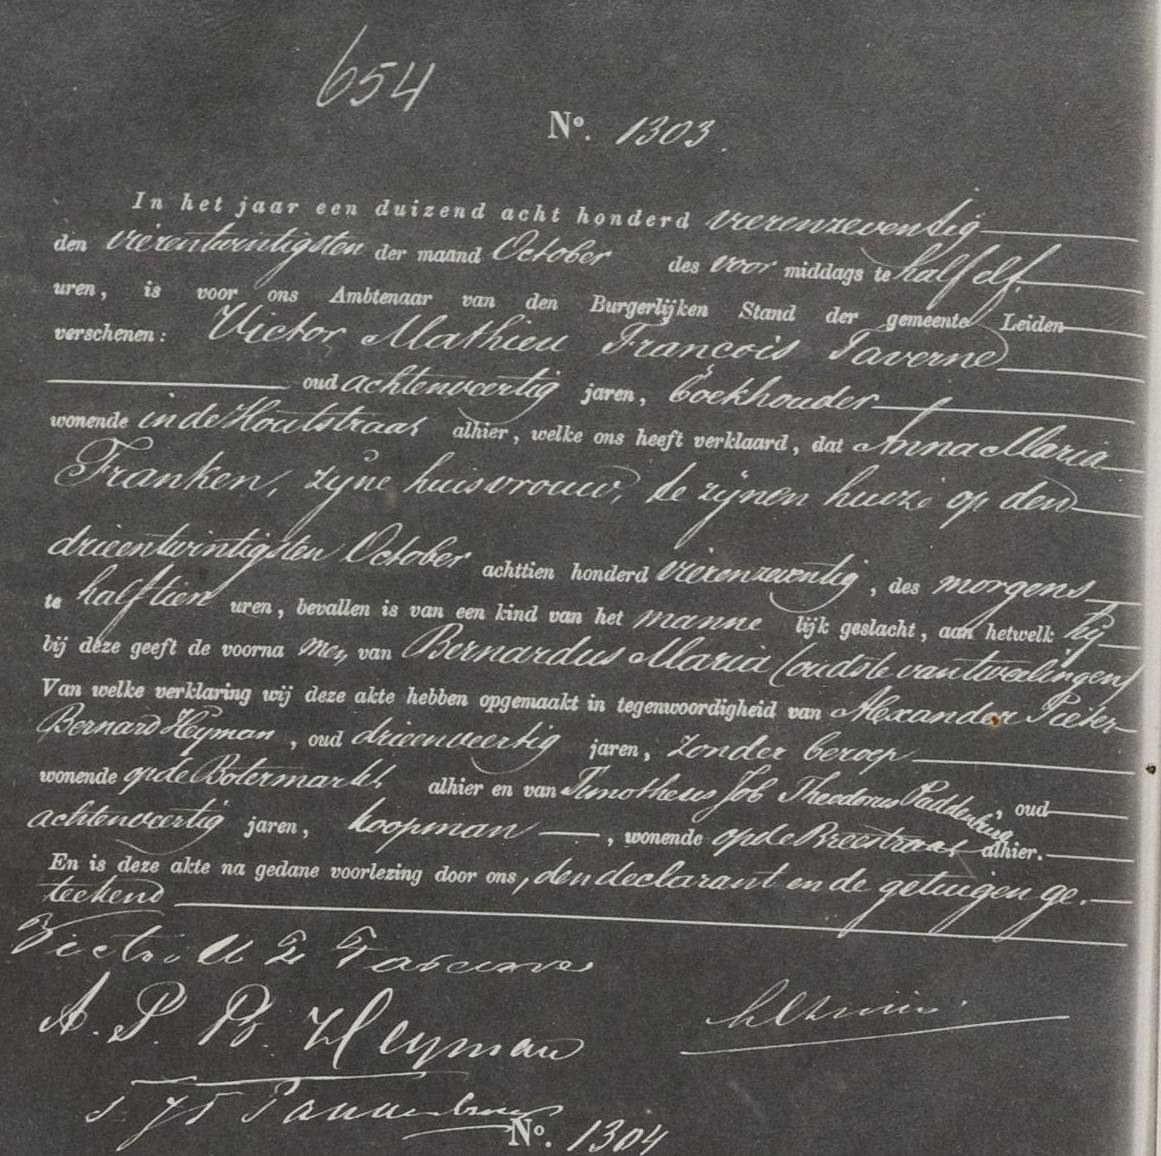 654
No. 1303.
In het jaar een duizend acht honderd vierenzeventig
den vierentwintigsten der maand October des voor middags te half elf.
uren, is voor ons Ambtenaar van den Burgerlijken Stand der gemeente Leiden
verschenen: Victor Mathieu François Taverne
oud achtenveertig jaren, boekhouder
wonende in de Houtstraat alhier, welke ons heeft verklaard, dat Anna Maria
Franken, zijne huisvrouw, te zijnen huize op den
drieentwintigsten October achttien honderd vierenzeventig, des morgens
te half tien uren, bevallen is van een kind van het manne lijk geslacht, aan hetwelk hij
bij deze geeft de voorna men van Bernardus Maria (oudste van tweelingen)
Van welke verklaring wij deze akte hebben opgemaakt in tegenwoordigheid van Alexander Pieter
Bernard Heyman, oud drieenveertig jaren, zonder beroep
wonende op de Botermarkt alhier en van Timotheus Job Theodorus Paddenburg, oud
achtenveertig jaren, koopman, wonende op de Breestraat alhier.
En is deze akte na gedane voorlezing door ons, den declarant en de getuigen ge-
teekend
Victor M F Taverne
A. P. B. Heyman
No. 1304